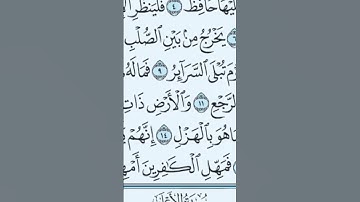 لَيْهَا حَافِظٌ ٤ فَلْيَنظُرِ
يَخْرُجُ مِنۢ بَيْنِ ٱلصُّلْبِ
مَ تُبْلَى ٱلسَّرَآئِرُ ٩ فَمَا لَهُ
لرَّجْعِ ١١ وَٱلْأَرْضِ ذَاتِ
مَا هُوَ بِٱلْهَزْلِ ١٤ إِنَّهُمْ
فَمَهِّلِ ٱلْكَٰفِرِينَ أَمْهِ